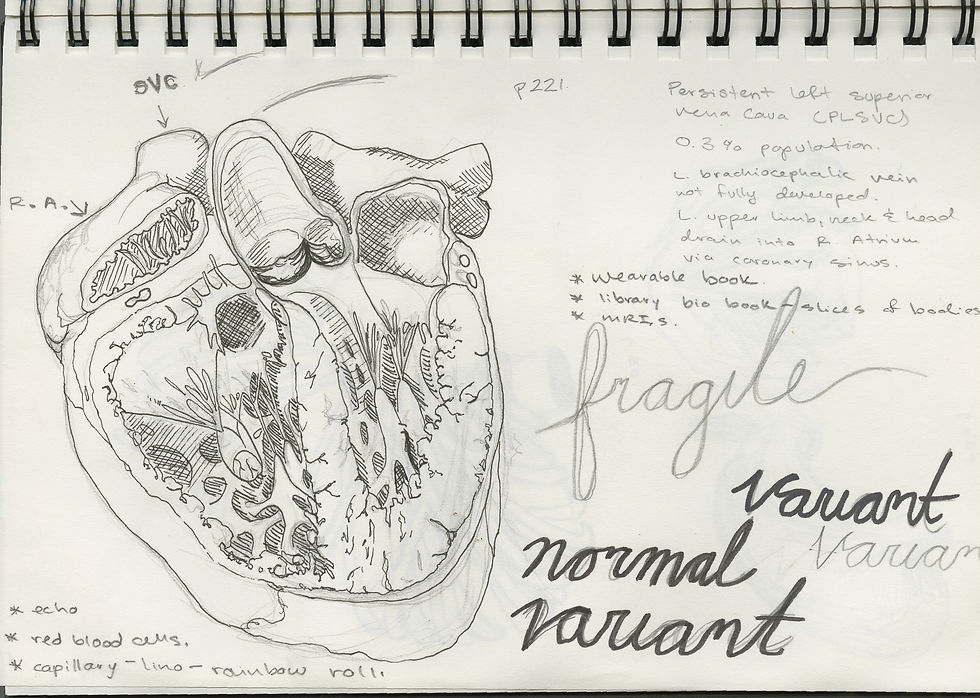 SVC
R.A.
p221.
Persistent left superior
vena cava (PLSVC)
0.3% population.
L. brachiocephalic vein
not fully developed.
L. upper limb, neck & head
drain into R. Atrium
via coronary sinus.
* Wearable book.
* library bio book - slices of bodies
* MRIs.
fragile
variant
normal
varian
variant
* echo
* red blood cells.
* capillary - lino - rainbow roll.